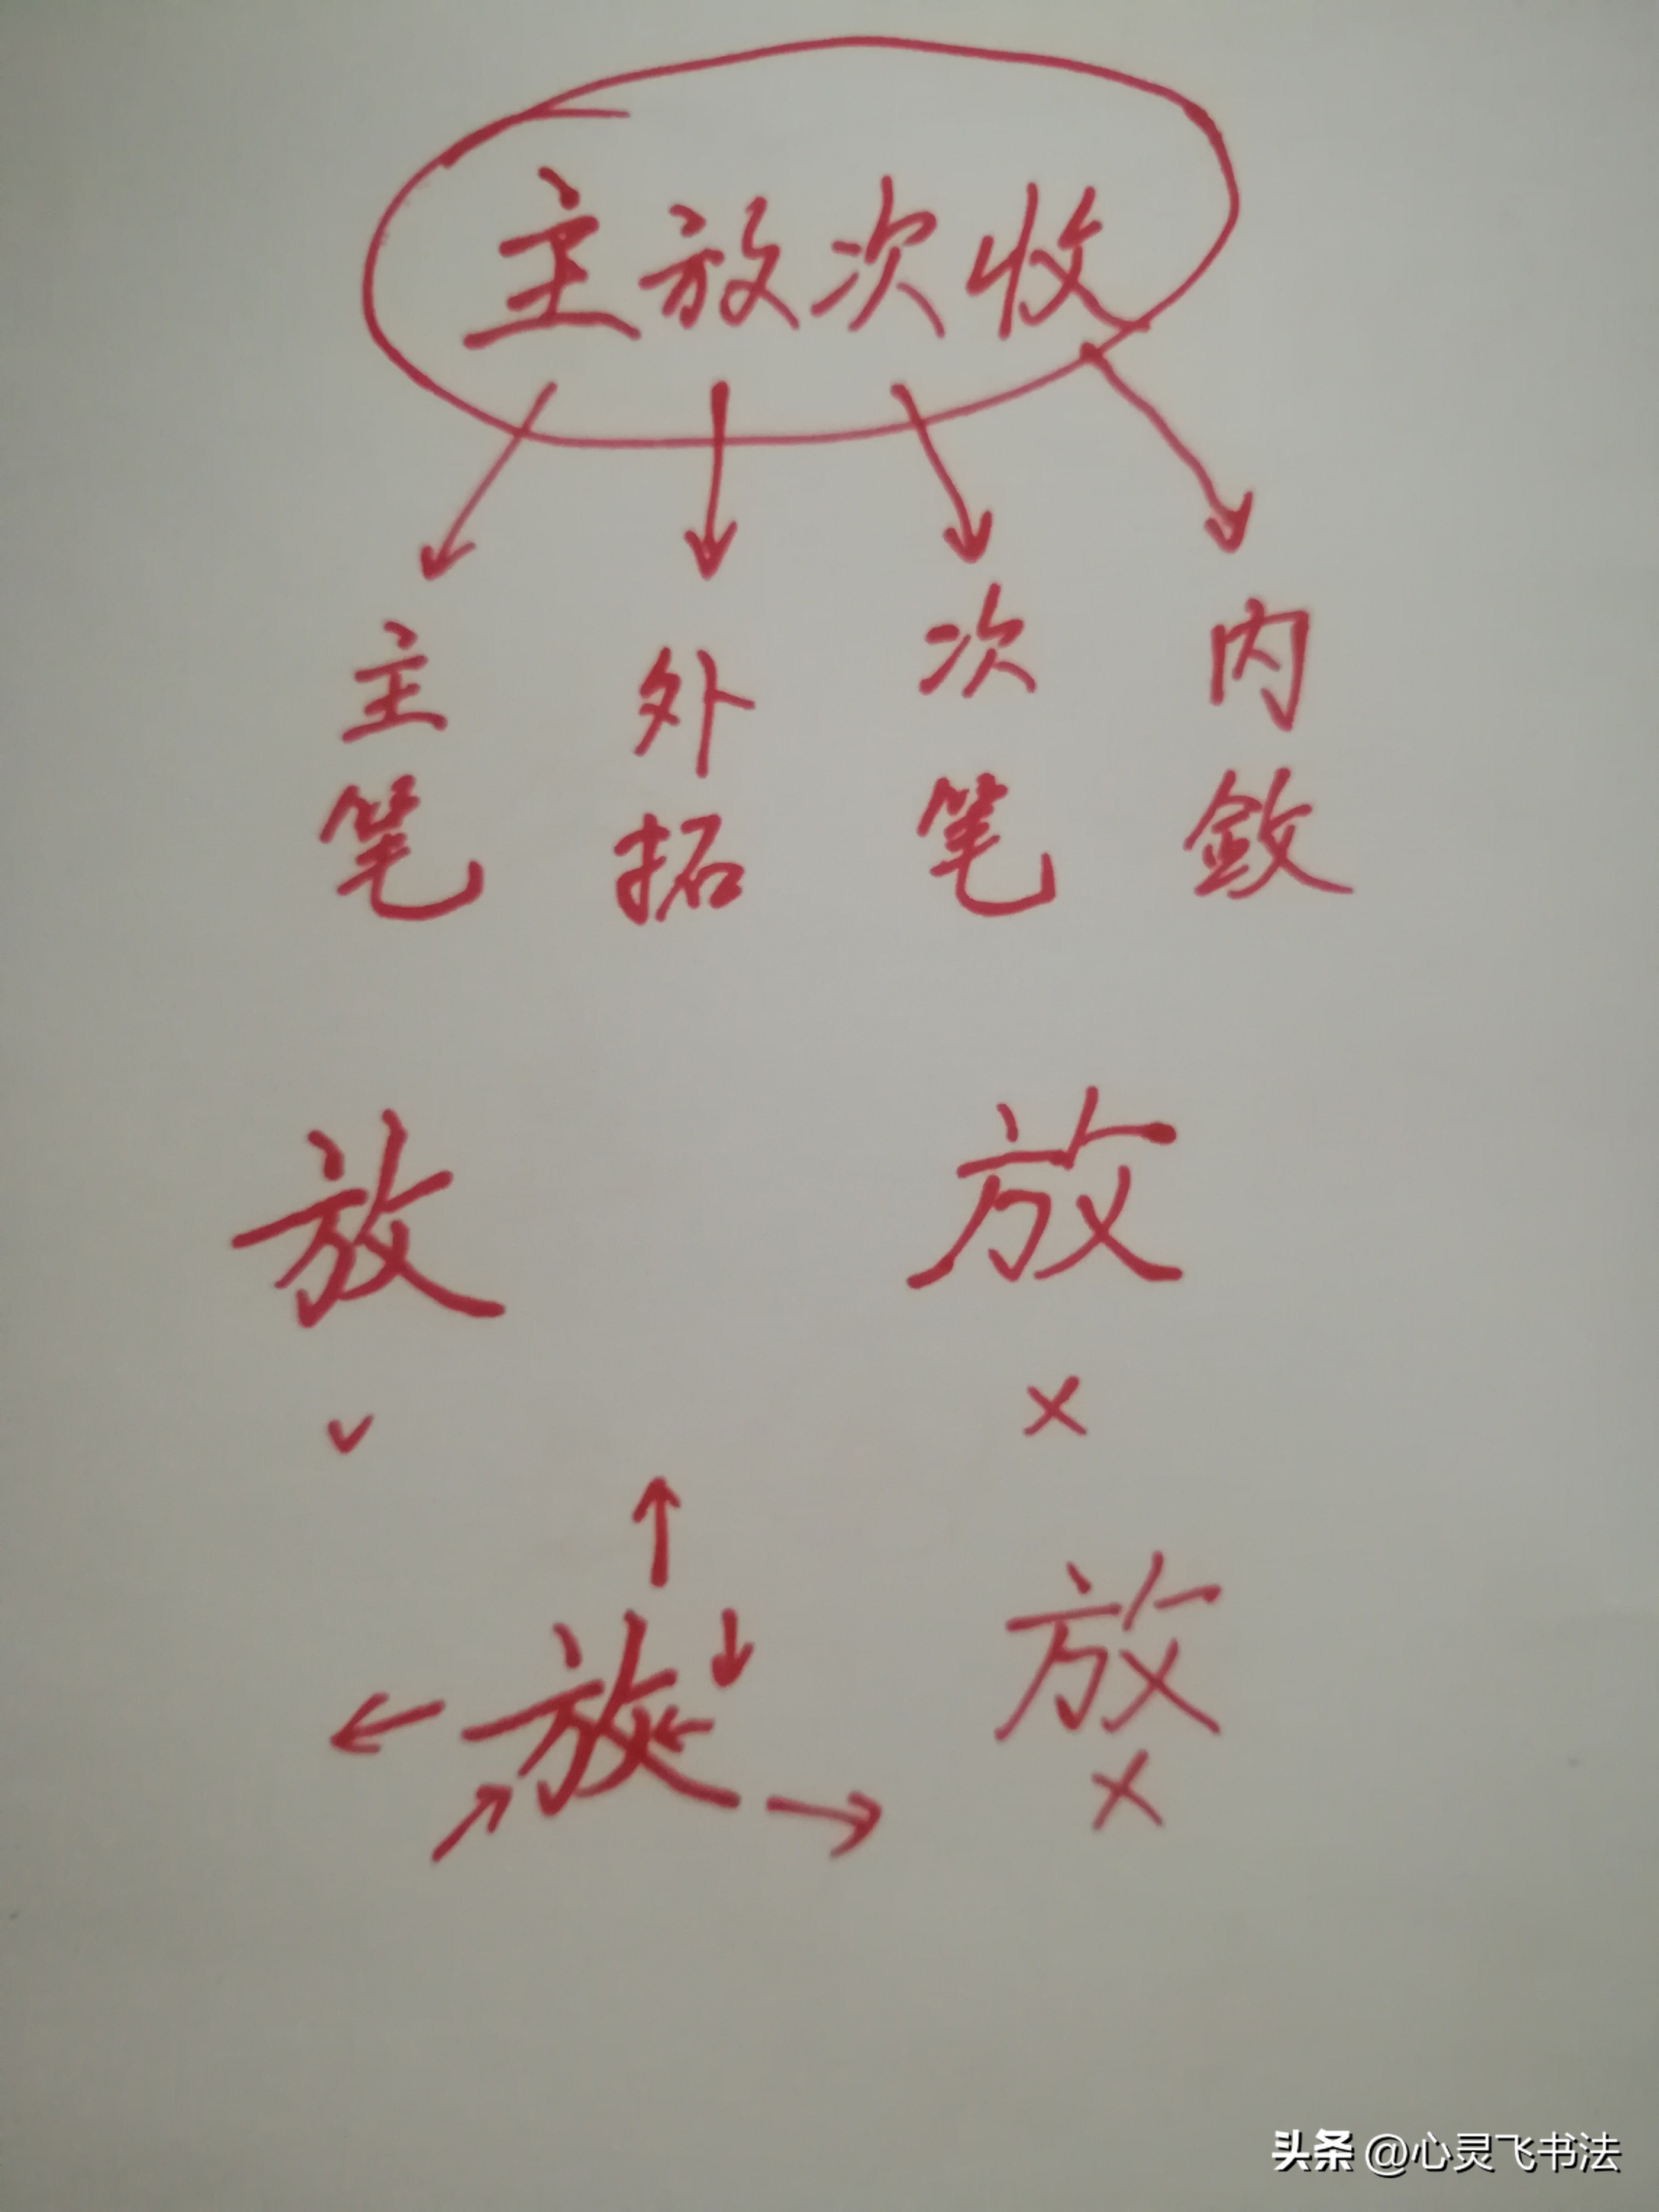 主放次收
主笔 外拓 次笔 内敛
放 放
✓ ×
放 放
×
头条 @心灵飞书法